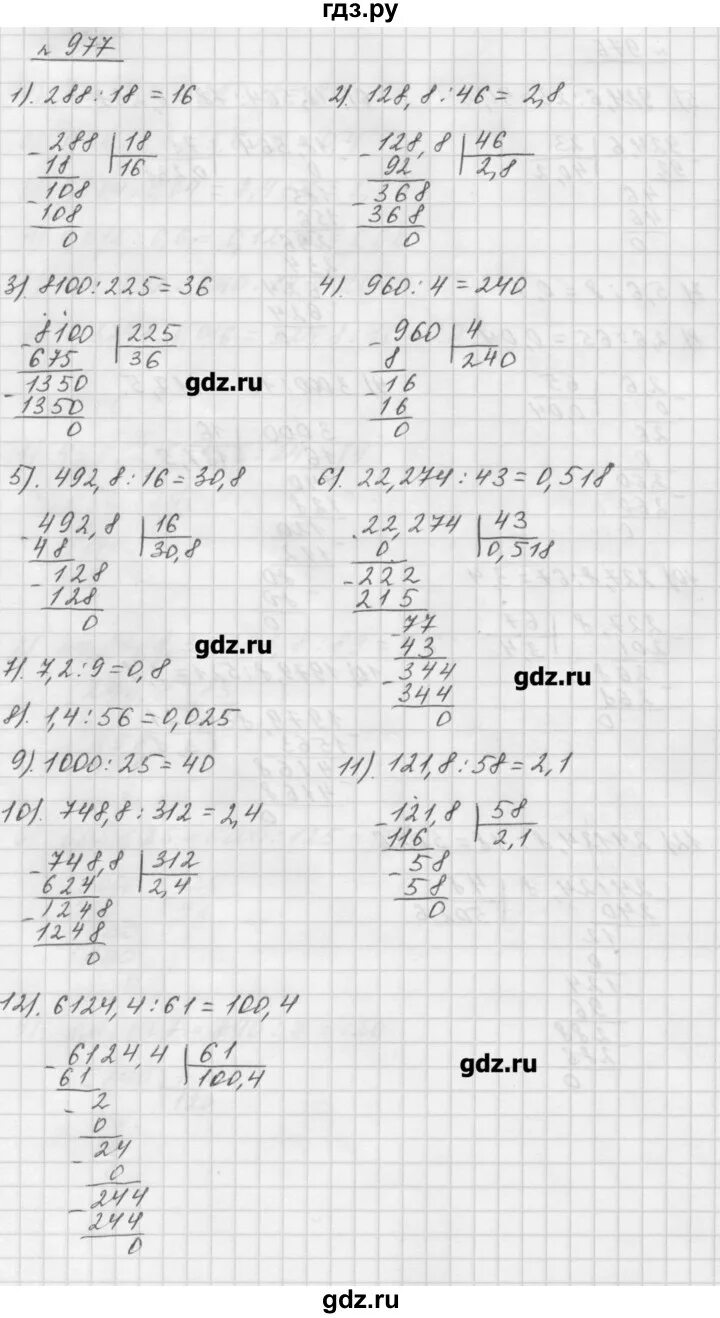 гдз.ру
№ 977
1). 288 : 18 = 16
288 | 18
18 | 16
108
108
0
2). 128,8 : 46 = 2,8
128,8 | 46
92 | 2,8
368
368
0
3). 8100 : 225 = 36
8100 | 225
675 | 36
1350
1350
0
4). 960 : 4 = 240
960 | 4
8 | 240
16
16
0
gdz.ru
5). 492,8 : 16 = 30,8
492,8 | 16
48 | 30,8
128
128
0
6). 22,274 : 43 = 0,518
22,274 | 43
0 | 0,518
222
215
77
43
344
344
0
gdz.ru
gdz.ru
7). 7,2 : 9 = 0,8
8). 1,4 : 56 = 0,025
9). 1000 : 25 = 40
10). 748,8 : 312 = 2,4
748,8 | 312
624 | 2,4
1248
1248
0
11). 121,8 : 58 = 2,1
121,8 | 58
116 | 2,1
58
58
0
12). 6124,4 : 61 = 100,4
6124,4 | 61
61 | 100,4
2
0
24
0
244
244
0
gdz.ru
gdz.ru